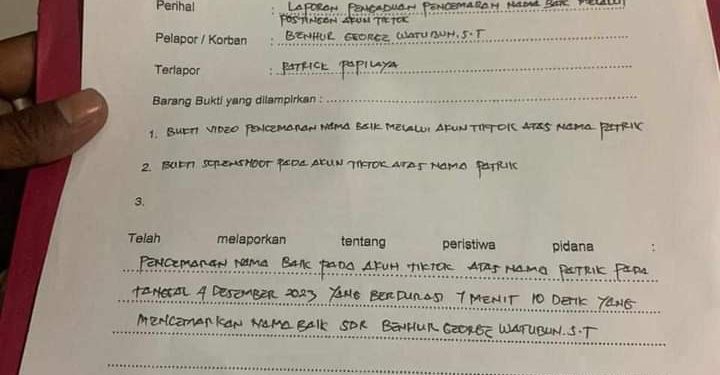 Perihal : LAPORAN PENGADUAN PENCEMARAN NAMA BAIK MELALUI
POSTINGAN AKUN TIKTOK
Pelapor / Korban : BENHUR GEORGE WATUBUN.S.T
Terlapor : PATRICK PAPILAYA
Barang Bukti yang dilampirkan :
1. BUKTI VIDEO PENCEMARAN NAMA BAIK MELALUI AKUN TIKTOK ATAS NAMA PATRIK
2. BUKTI SCREENSHOOT PADA AKUN TIKTOK ATAS NAMA PATRIK
3.
Telah melaporkan tentang peristiwa pidana :
PENCEMARAN NAMA BAIK PADA AKUN TIKTOK ATAS NAMA PATRIK PADA
TANGGAL 4 DESEMBER 2023 YANG BERDURASI 7 MENIT 10 DETIK YANG
MENCEMARKAN NAMA BAIK SDR BENHUR GEORGE WATUBUN.S.T